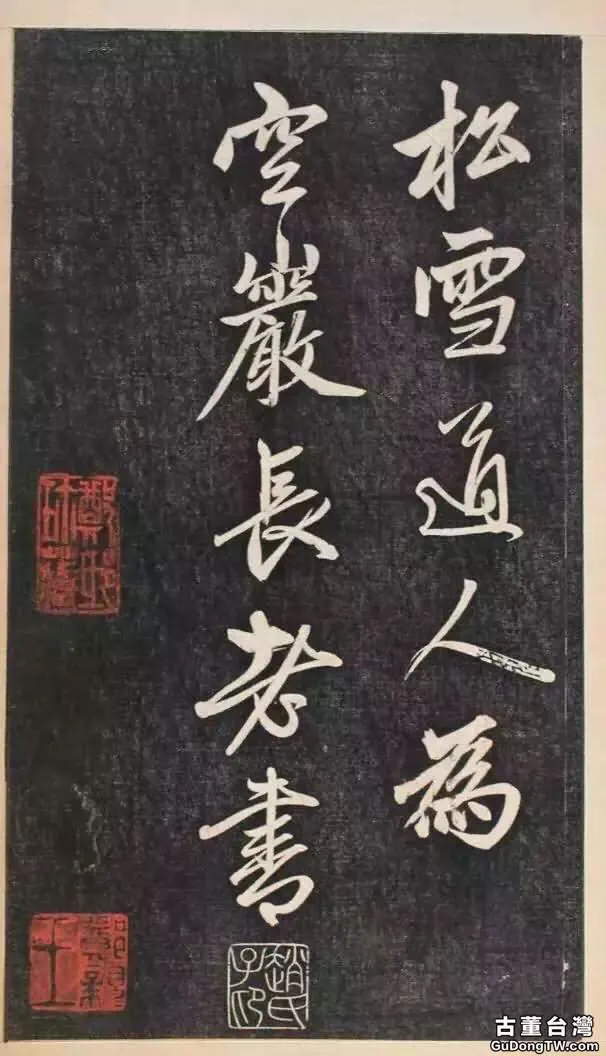 松雪道人為
空巖長老書
趙氏子印
古董台灣
GuDongTW.com